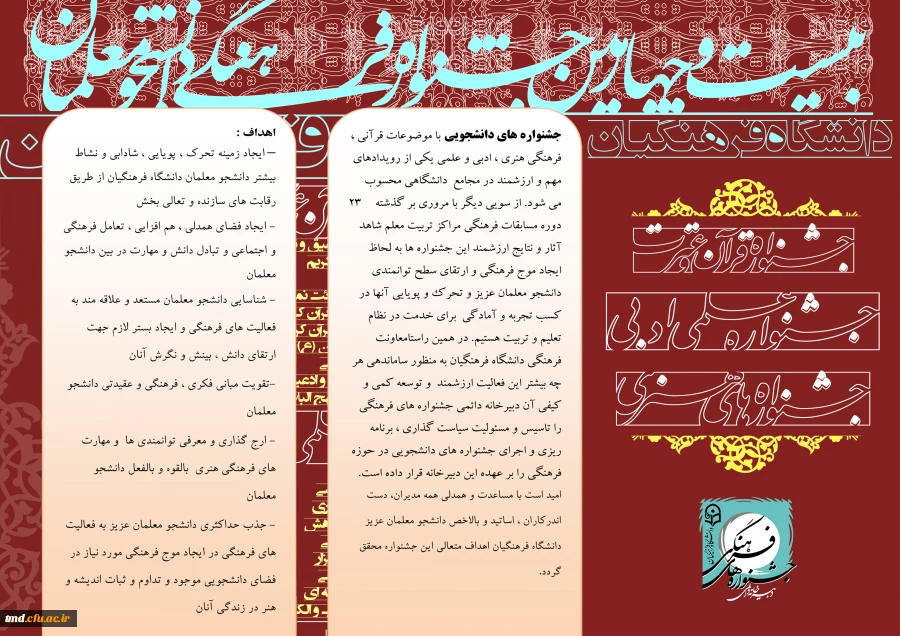 بیست و چهارمین جشنواره فرهنگی دانشجو معلمان
دانشگاه فرهنگیان
جشنواره قرآن و عترت
جشنواره علمی ادبی
جشنواره های هنری
فرهنگی
جشنواره های
جشنواره های دانشجویی با موضوعات قرآنی ،
فرهنگی هنری ، ادبی و علمی یکی از رویدادهای
مهم و ارزشمند در مجامع دانشگاهی محسوب
می شود. از سویی دیگر با مروری بر گذشته ۲۳
دوره مسابقات فرهنگی مراکز تربیت معلم شاهد
آثار و نتایج ارزشمند این جشنواره ها به لحاظ
ایجاد موج فرهنگی و ارتقای سطح توانمندی
دانشجو معلمان عزیز و تحرك و پویایی آنها در
کسب تجربه و آمادگی برای خدمت در نظام
تعلیم و تربیت هستیم. در همین راستامعاونت
فرهنگی دانشگاه فرهنگیان به منظور ساماندهی هر
چه بیشتر این فعالیت ارزشمند و توسعه کمی و
کیفی آن دبیرخانه دائمی جشنواره های فرهنگی
را تاسیس و مسئولیت سیاست گذاری ، برنامه
ریزی و اجرای جشنواره های دانشجویی در حوزه
فرهنگی را بر عهده این دبیرخانه قرار داده است.
امید است با مساعدت و همدلی همه مدیران، دست
اندرکاران ، اساتید و بالاخص دانشجو معلمان عزیز
دانشگاه فرهنگیان اهداف متعالی این جشنواره محقق
گردد.
اهداف :
– ایجاد زمینه تحرک ، پویایی ، شادابی و نشاط
بیشتر دانشجو معلمان دانشگاه فرهنگیان از طریق
رقابت های سازنده و تعالی بخش
- ایجاد فضای همدلی ، هم افزایی ، تعامل فرهنگی
و اجتماعی و تبادل دانش و مهارت در بین دانشجو
معلمان
- شناسایی دانشجو معلمان مستعد و علاقه مند به
فعالیت های فرهنگی و ایجاد بستر لازم جهت
ارتقای دانش ، بینش و نگرش آنان
-تقویت مبانی فکری ، فرهنگی و عقیدتی دانشجو
معلمان
- ارج گذاری و معرفی توانمندی ها و مهارت
های فرهنگی هنری بالقوه و بالفعل دانشجو
معلمان
- جذب حداکثری دانشجو معلمان عزیز به فعالیت
های فرهنگی در ایجاد موج فرهنگی مورد نیاز در
فضای دانشجویی موجود و تداوم و ثبات اندیشه و
هنر در زندگی آنان
tmd.cfu.ac.ir